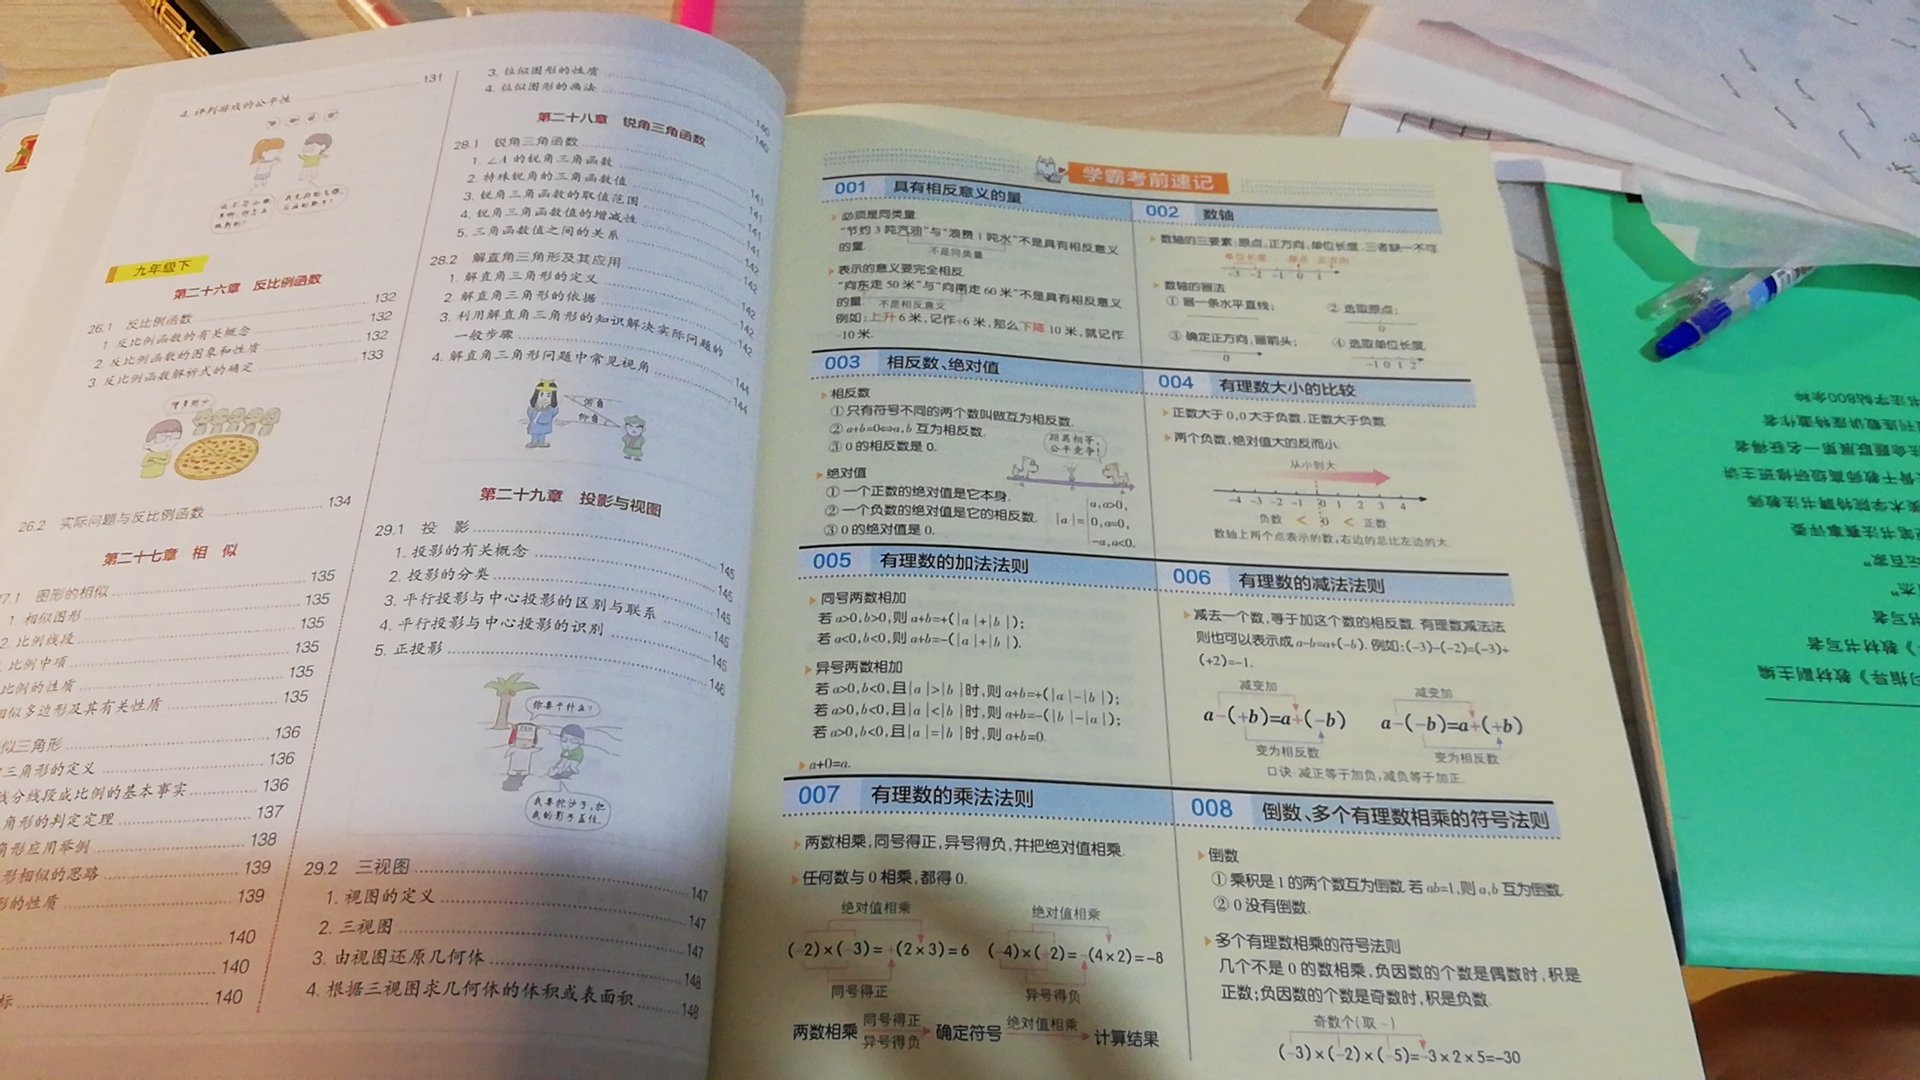 4. 评判游戏的公平性 131
九年级下
第二十六章 反比例函数
26.1 反比例函数 132
1. 反比例函数的有关概念 132
2. 反比例函数的图象和性质 132
3. 反比例函数解析式的确定 133
26.2 实际问题与反比例函数 134
第二十七章 相 似
27.1 图形的相似 135
1. 相似图形 135
2. 比例线段 135
比例中项 135
比例的性质 135
相似多边形及其有关性质 135
似三角形 136
三角形的定义 136
线分线段成比例的基本事实 136
角形的判定定理 137
角形应用举例 138
形相似的思路 139
形的性质 139
140
140
标 140
3. 位似图形的性质 140
4. 位似图形的画法 140
第二十八章 锐角三角函数
28.1 锐角三角函数 141
1. ∠A 的锐角三角函数 141
2. 特殊锐角的三角函数值 141
3. 锐角三角函数的取值范围 141
4. 锐角三角函数值的增减性 141
5. 三角函数值之间的关系 142
28.2 解直角三角形及其应用 142
1. 解直角三角形的定义 142
2. 解直角三角形的依据 142
3. 利用解直角三角形的知识解决实际问题的
一般步骤 144
4. 解直角三角形问题中常见视角 144
俯角
仰角
第二十九章 投影与视图
29.1 投 影 145
1. 投影的有关概念 145
2. 投影的分类 145
3. 平行投影与中心投影的区别与联系 145
4. 平行投影与中心投影的识别 145
5. 正投影 146
你要干什么?
我要挖沙子,把
我的影子盖住.
29.2 三视图 147
1. 视图的定义 147
2. 三视图 147
3. 由视图还原几何体 148
4. 根据三视图求几何体的体积或表面积 148
学霸考前速记
001 具有相反意义的量
必须是同类量
“节约 3 吨汽油”与“浪费 1 吨水”不是具有相反意义
的量.
不是同类量
表示的意义要完全相反
“向东走 50 米”与“向南走 60 米”不是具有相反意义
的量.
不是相反意义
例如:上升 6 米,记作+6 米,那么下降 10 米,就记作
-10 米.
002 数轴
数轴的三要素:原点,正方向,单位长度,三者缺一不可
单位长度 原点 正方向
-3 -2 -1 0 1
数轴的画法
① 画一条水平直线;
② 选取原点;
0
③ 确定正方向,画箭头;
0
④ 选取单位长度
-1 0 1 2
003 相反数、绝对值
相反数
① 只有符号不同的两个数叫做互为相反数.
② a+b=0⇔a,b 互为相反数.
③ 0 的相反数是 0.
距离相等,
公平竞争!
绝对值
① 一个正数的绝对值是它本身.
② 一个负数的绝对值是它的相反数.
③ 0 的绝对值是 0.
|a|=
a,a>0,
0,a=0,
-a,a<0.
004 有理数大小的比较
正数大于 0,0 大于负数,正数大于负数
两个负数,绝对值大的反而小.
从小到大
-4 -3 -2 -1 0 1 2 3 4
负数 < 0 < 正数
数轴上两个点表示的数,右边的总比左边的大
005 有理数的加法法则
同号两数相加
若 a>0,b>0,则 a+b=+(|a|+|b|);
若 a<0,b<0,则 a+b=-(|a|+|b|).
异号两数相加
若 a>0,b<0,且|a|>|b|时,则 a+b=+(|a|-|b|);
若 a>0,b<0,且|a|<|b|时,则 a+b=-(|b|-|a|);
若 a>0,b<0,且|a|=|b|时,则 a+b=0.
a+0=a.
006 有理数的减法法则
减去一个数,等于加这个数的相反数.有理数减法法
则也可以表示成 a-b=a+(-b). 例如:(-3)-(-2)=(-3)+
(+2)=-1.
减变加
a-(+b)=a+(-b)
变为相反数
减变加
a-(-b)=a+(+b)
变为相反数
口诀:减正等于加负,减负等于加正.
007 有理数的乘法法则
两数相乘,同号得正,异号得负,并把绝对值相乘.
任何数与 0 相乘,都得 0.
绝对值相乘
(-2)×(-3)=+(2×3)=6
同号得正
绝对值相乘
(-4)×(+2)=-(4×2)=-8
异号得负
两数相乘 同号得正 异号得负 确定符号 绝对值相乘 计算结果
008 倒数、多个有理数相乘的符号法则
倒数
① 乘积是 1 的两个数互为倒数.若 ab=1,则 a,b 互为倒数.
② 0 没有倒数.
多个有理数相乘的符号法则
几个不是 0 的数相乘,负因数的个数是偶数时,积是
正数;负因数的个数是奇数时,积是负数.
奇数个(取 -)
(-3)×(-2)×(-5)=-3×2×5=-30